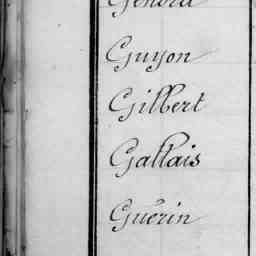 Guyon
Gilbert
Gallais
Guérin